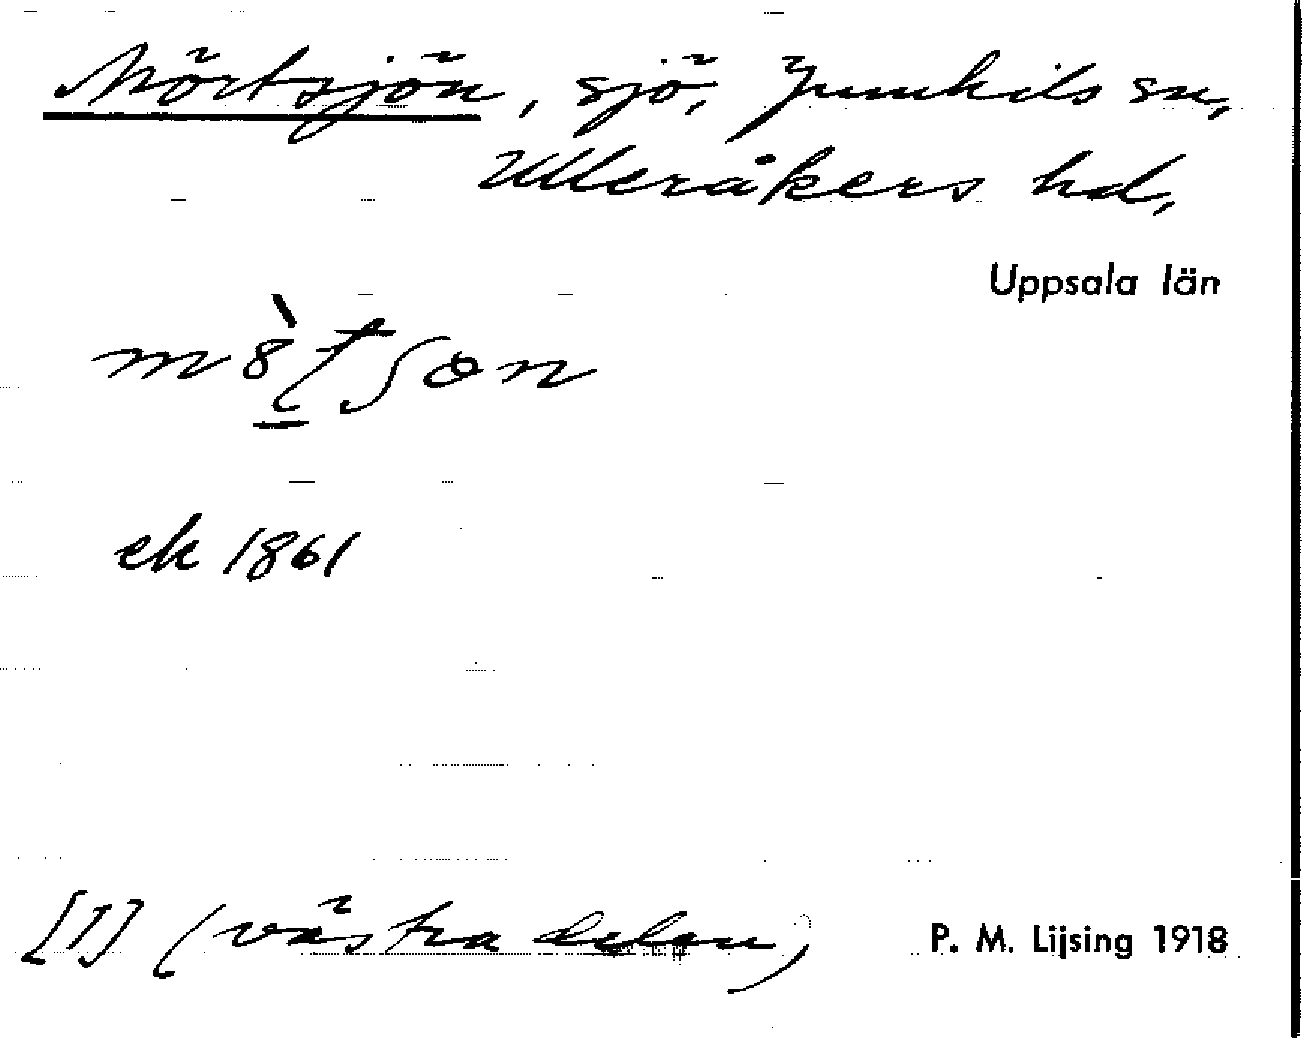 Mörtsjön, sjö, Jumkils sn,
Ulleråkers hd,
Uppsala län
ek 1861
[1] (västra delen)
P. M. Lijsing 1918